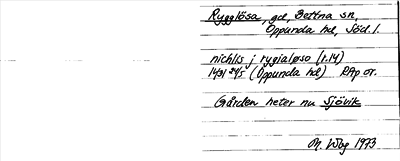 Rygglösa, gd, Bettna sn,
Oppunda hd, Söd.l.
nichlis j rygialøso (r.14)
1431 24/5 (Oppunda hd) RAp or.
Gården heter nu Sjövik
M. Wbg 1973